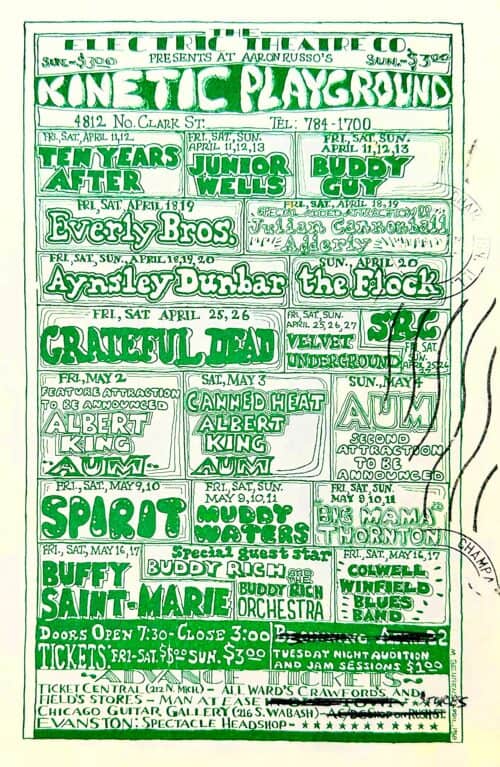 THE
ELECTRIC THEATRE CO.
SUN.-$3.00 PRESENTS AT AARON RUSSO'S SUN.-$3.00
KINETIC PLAYGROUND
4812 NO. CLARK ST. TEL: 784-1700
FRI, SAT, APRIL 11, 12,
TEN YEARS
AFTER
FRI, SAT, SUN.
APRIL 11, 12, 13
JUNIOR
WELLS
FRI, SAT, SUN.
APRIL 11, 12, 13
BUDDY
GUY
FRI, SAT APRIL 18, 19
Everly Bros.
FRI, SAT, APRIL 18, 19
SPECIAL ADDED ATTRACTION!!!
Julian Cannonball
Adderly
FRI, SAT, SUN., APRIL 18, 19, 20
Aynsley Dunbar
SUN. APRIL 20
the Flock
FRI, SAT APRIL 25, 26
GRATEFUL DEAD
FRI, SAT, SUN.
APRIL 25, 26, 27
VELVET
UNDERGROUND
SRC
FRI, SAT,
SUN.
FRI, MAY 2
FEATURE ATTRACTION
TO BE ANNOUNCED
ALBERT
KING
AUM
SAT, MAY 3
CANNED HEAT
ALBERT
KING
AUM
SUN., MAY 4
AUM
SECOND
ATTRACTION
TO BE
ANNOUNCED
FRI, SAT, MAY 9, 10
SPIRIT
FRI, SAT, SUN.
MAY 9, 10, 11
MUDDY
WATERS
FRI, SAT, SUN.
MAY 9, 10, 11
"BIG MAMA"
THORNTON
FRI, SAT, MAY 16, 17
BUFFY
SAINT-MARIE
Special guest star
BUDDY RICH AND THE
BUDDY RICH
ORCHESTRA
FRI, SAT, MAY 16, 17
COLWELL
WINFIELD
BLUES
BAND
DOORS OPEN 7:30-CLOSE 3:00
TICKETS: FRI-SAT. $5.00 SUN. $3.00
TUESDAY NIGHT AUDITION
AND JAM SESSIONS $1.00
ADVANCE TICKETS
TICKET CENTRAL (212 N. MICH.) - ALL WARD'S, CRAWFORD'S AND
FIELD'S STORES - MAN AT EASE STORES
CHICAGO GUITAR GALLERY (216 S. WABASH)
EVANSTON: SPECTACLE HEADSHOP
CHAMPA